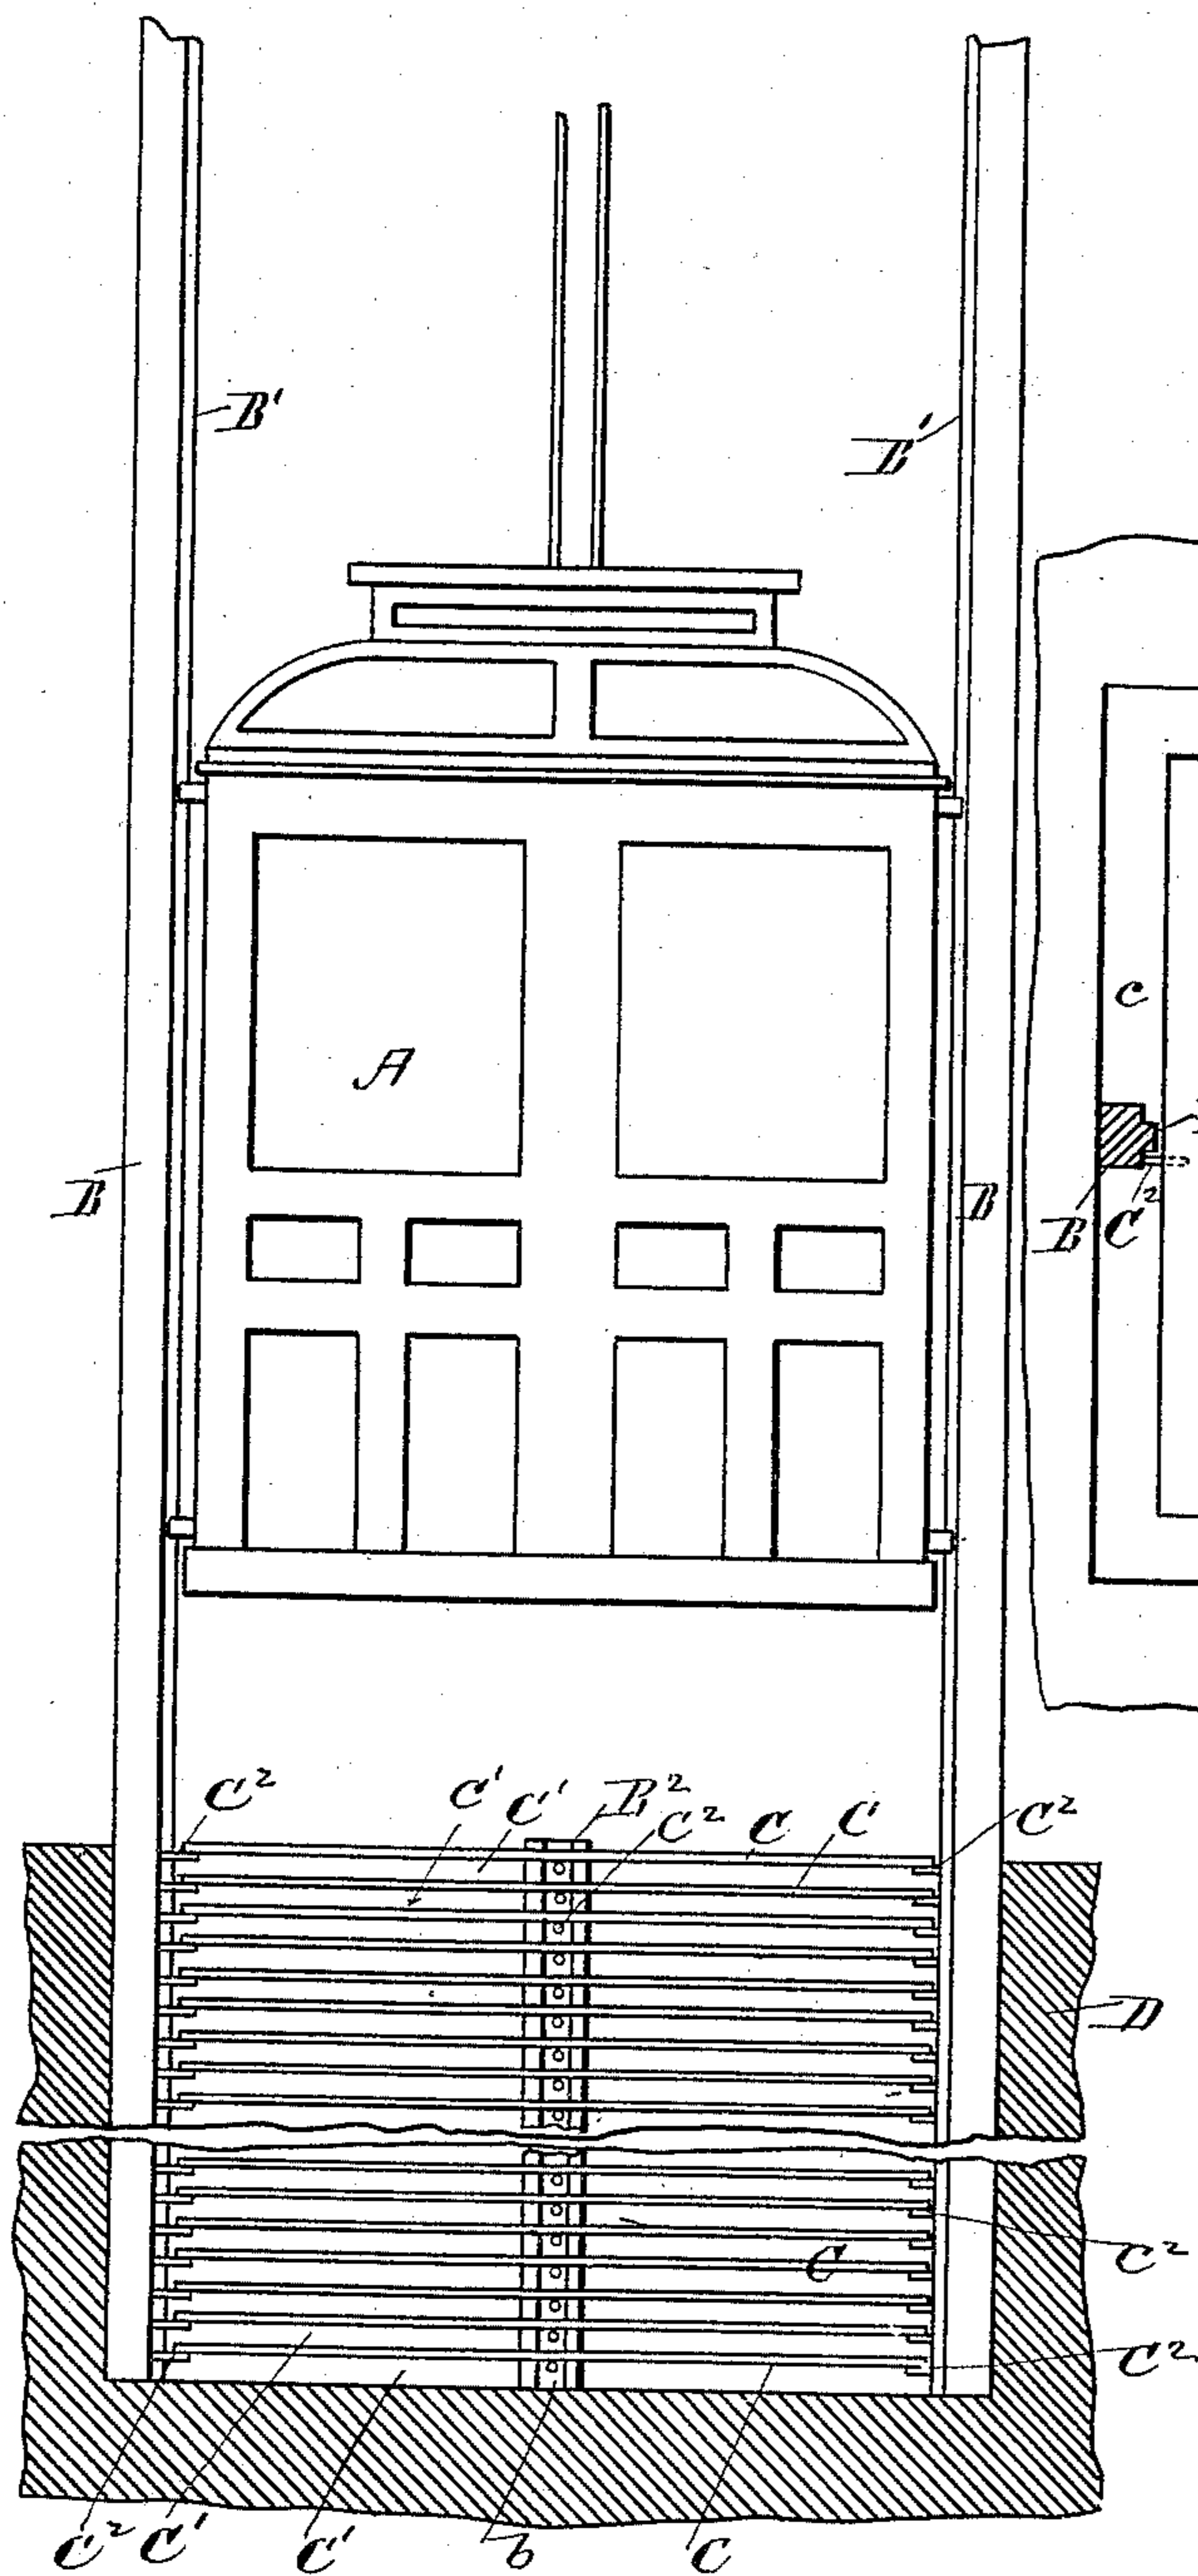 B' B'
A
c
B B B C²
C² C' C' B² C² C C C²
D
C C²
C²
C² C' C' b C